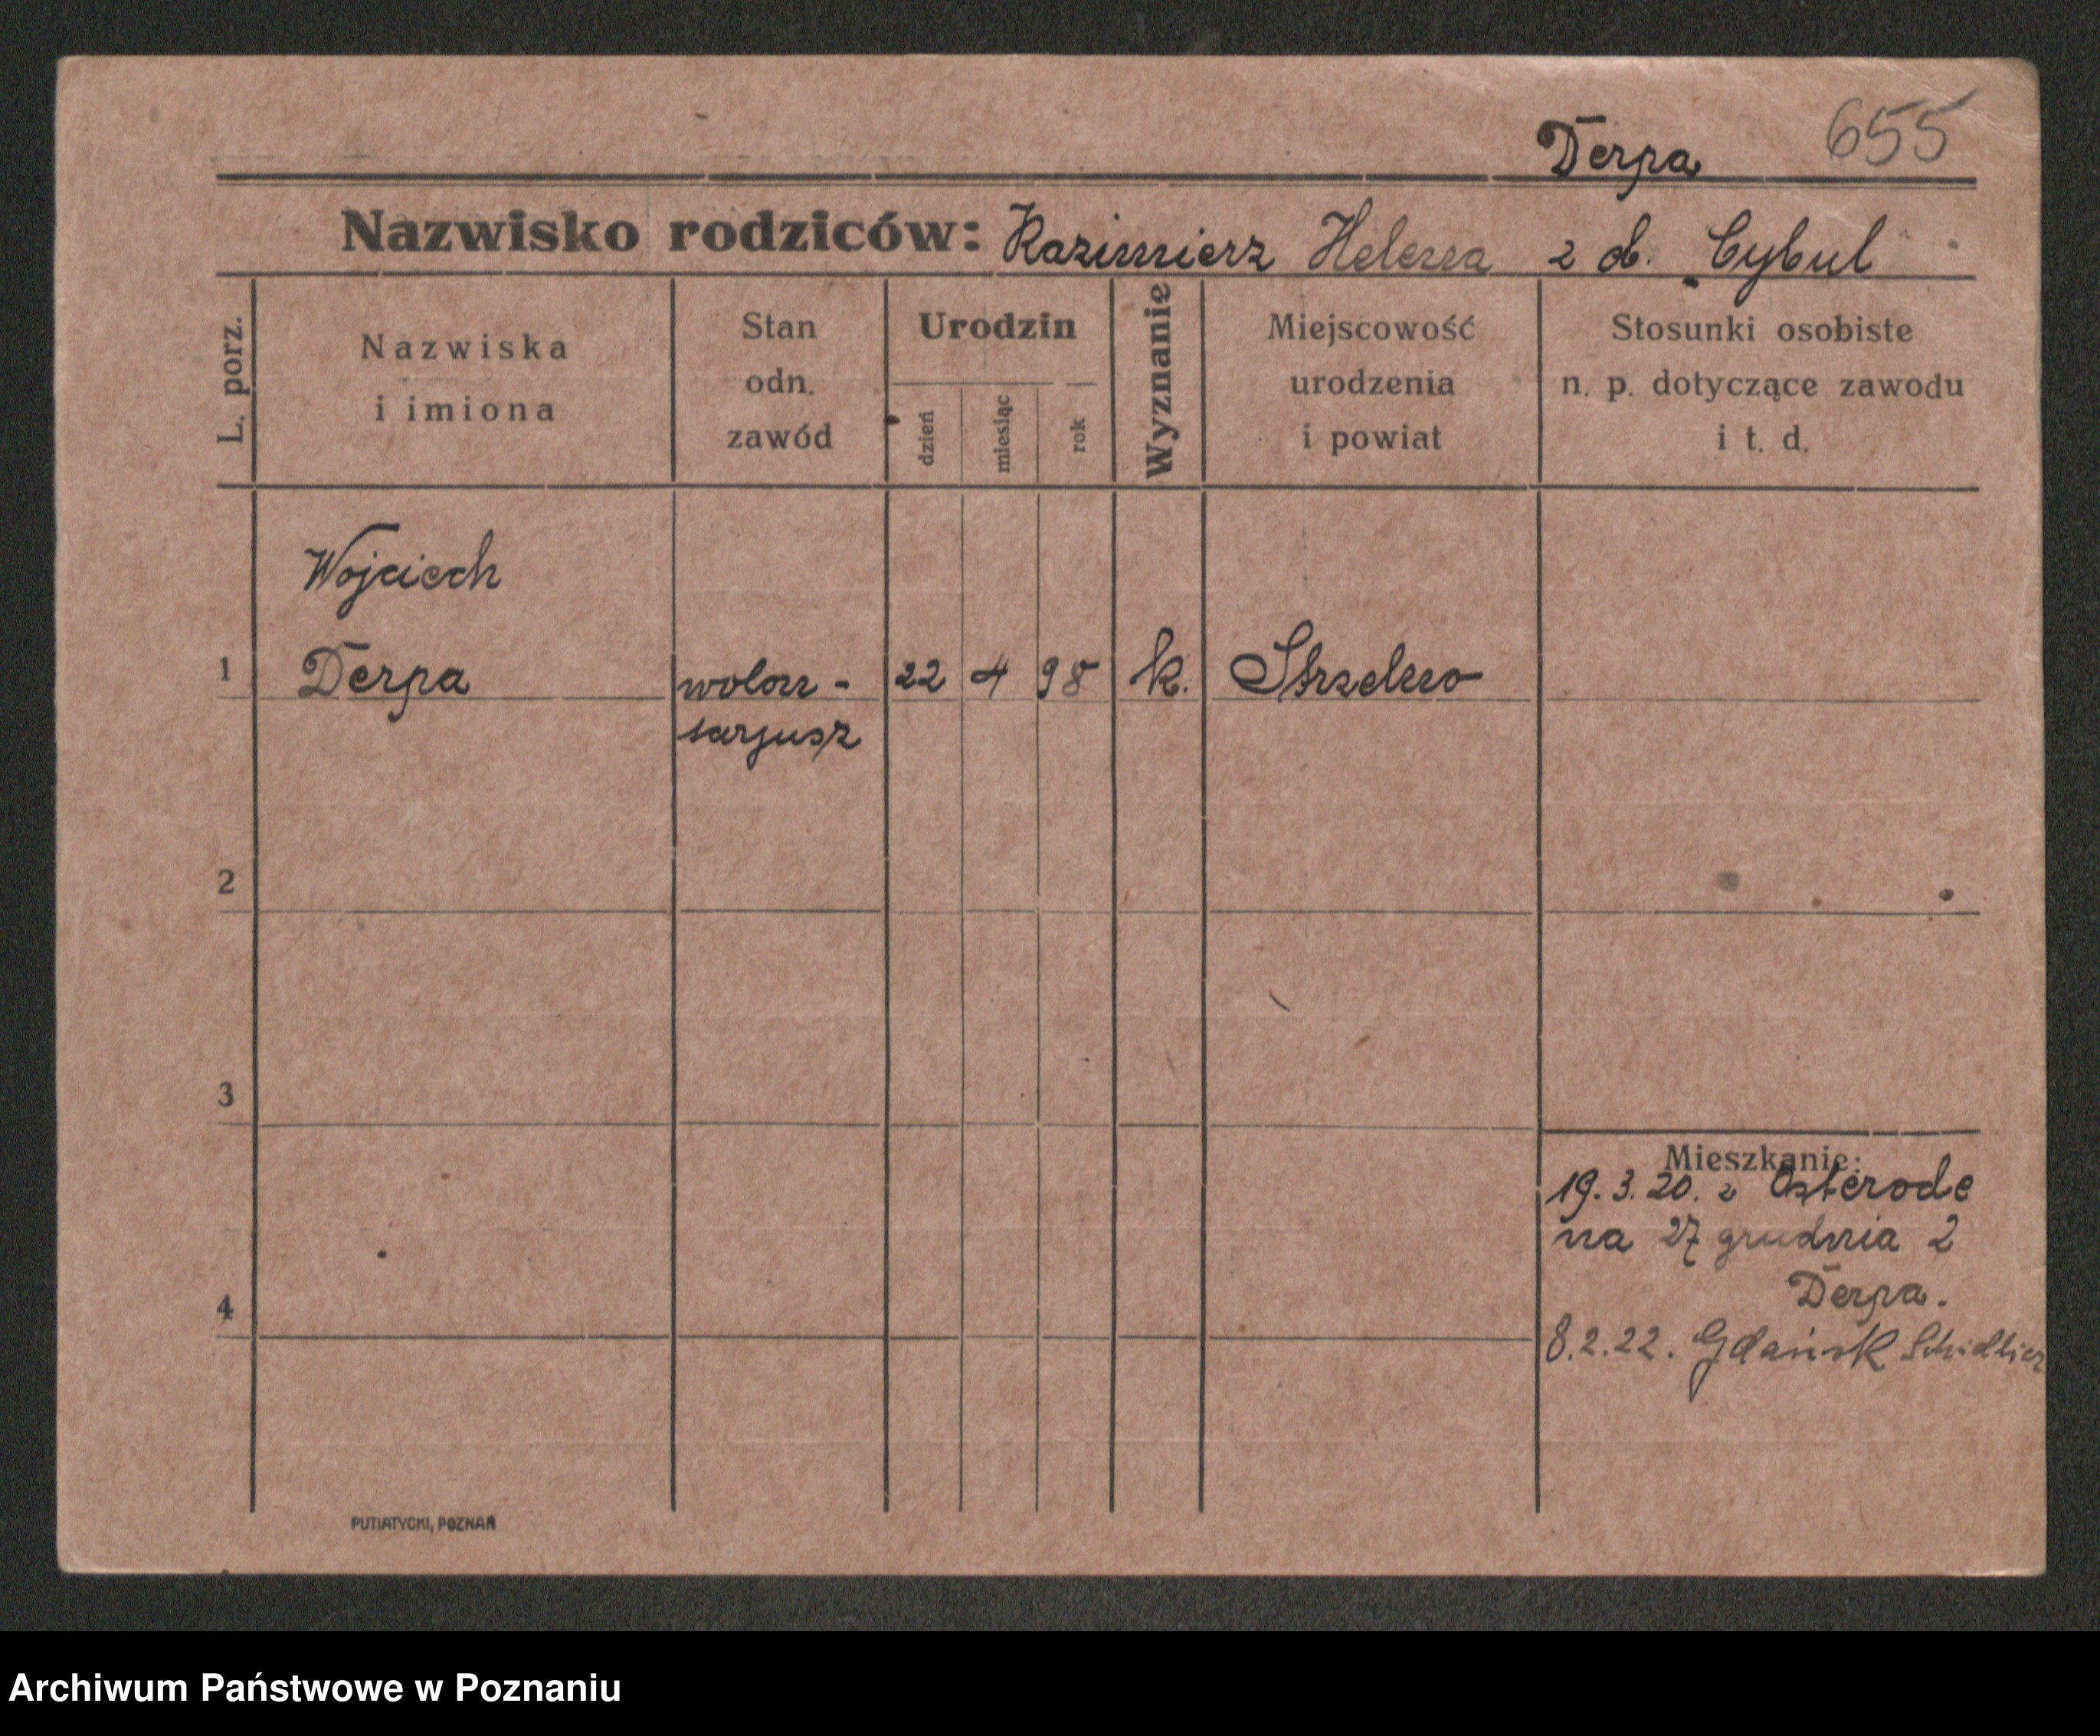 Derpa 655
Nazwisko rodziców: Kazimierz Helena z d. Cybul
L. porz.
Nazwiska
i imiona
Stan
odn.
zawód
Urodzin
dzień
miesiąc
rok
Wyznanie
Miejscowość
urodzenia
i powiat
Stosunki osobiste
n. p. dotyczące zawodu
i t. d.
Wojciech
1 Derpa wolon- 22 4 98 k. Strzelno
tarjusz
2
3
Mieszkanie:
19. 3. 20. z Osterode
na 27 grudnia 2
Derpa.
4
8.2.22. Gdańsk Schidlicz
PUTIATYCKI, POZNAŃ
Archiwum Państwowe w Poznaniu